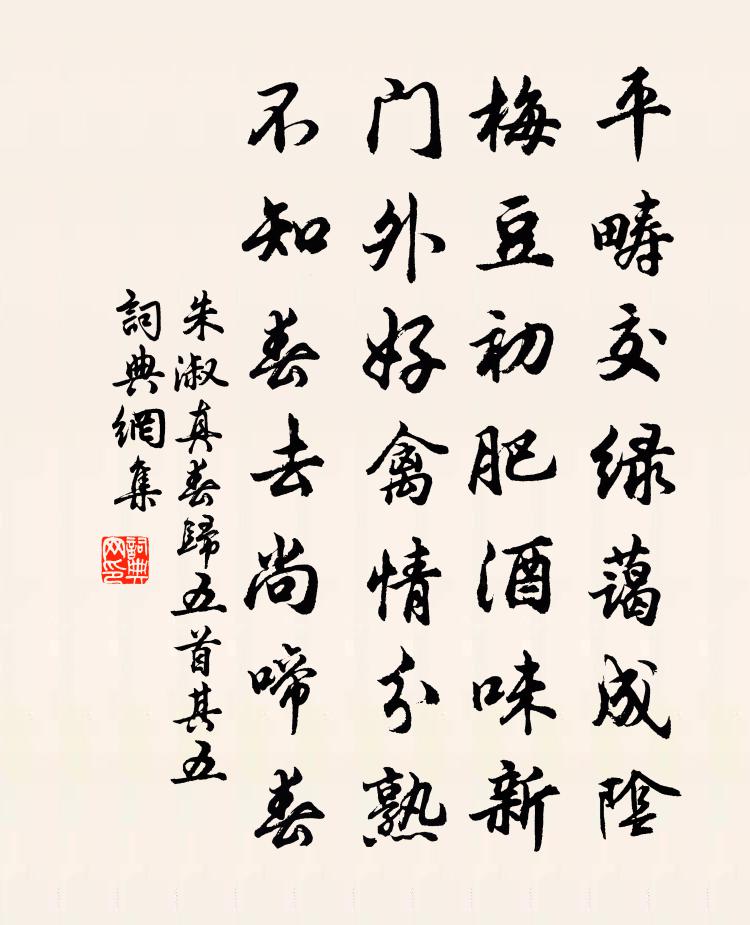 平畴交绿蔼成陰
梅豆初肥酒味新
门外好禽情分熟
不知春去尚啼春
朱淑真春歸五首其五
詞典網集
詞典网印